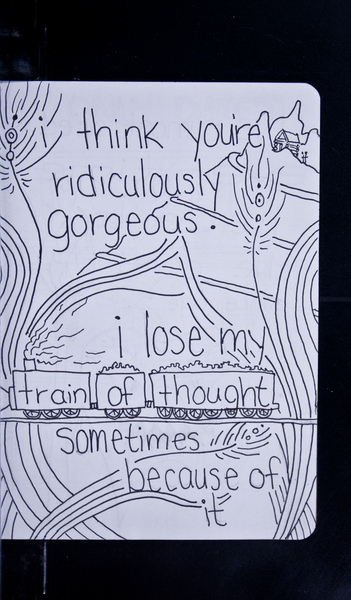 i think you're
ridiculously
gorgeous.
i lose my
train of thought
sometimes
because of
it